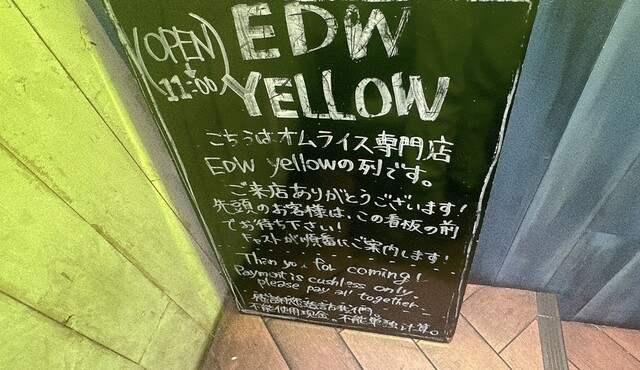 OPEN
11:00
EDW
YELLOW
こちらはオムライス専門店
EDW yellowの列です。
ご来店ありがとうございます!
先頭のお客様は、この看板の前
でお待ち下さい!
キャストが順番にご案内します!
Thank you for coming!
Payment is cushless only
please pay all together
不能使用現金、不能単独计算。